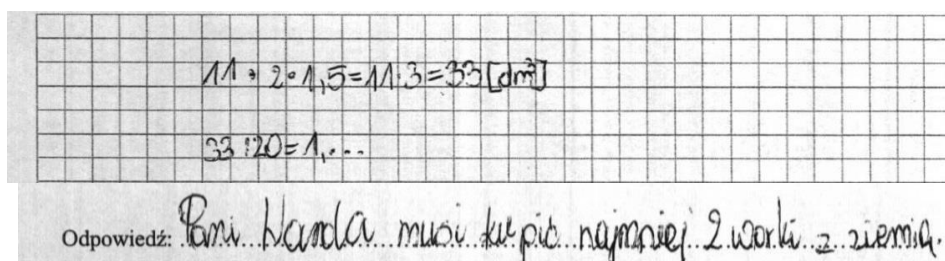 11 · 2 · 1,5 = 11 · 3 = 33 [dm³]
33 : 20 = 1,...
Odpowiedź: Pani Wanda musi kupić najmniej 2 worki z ziemią.